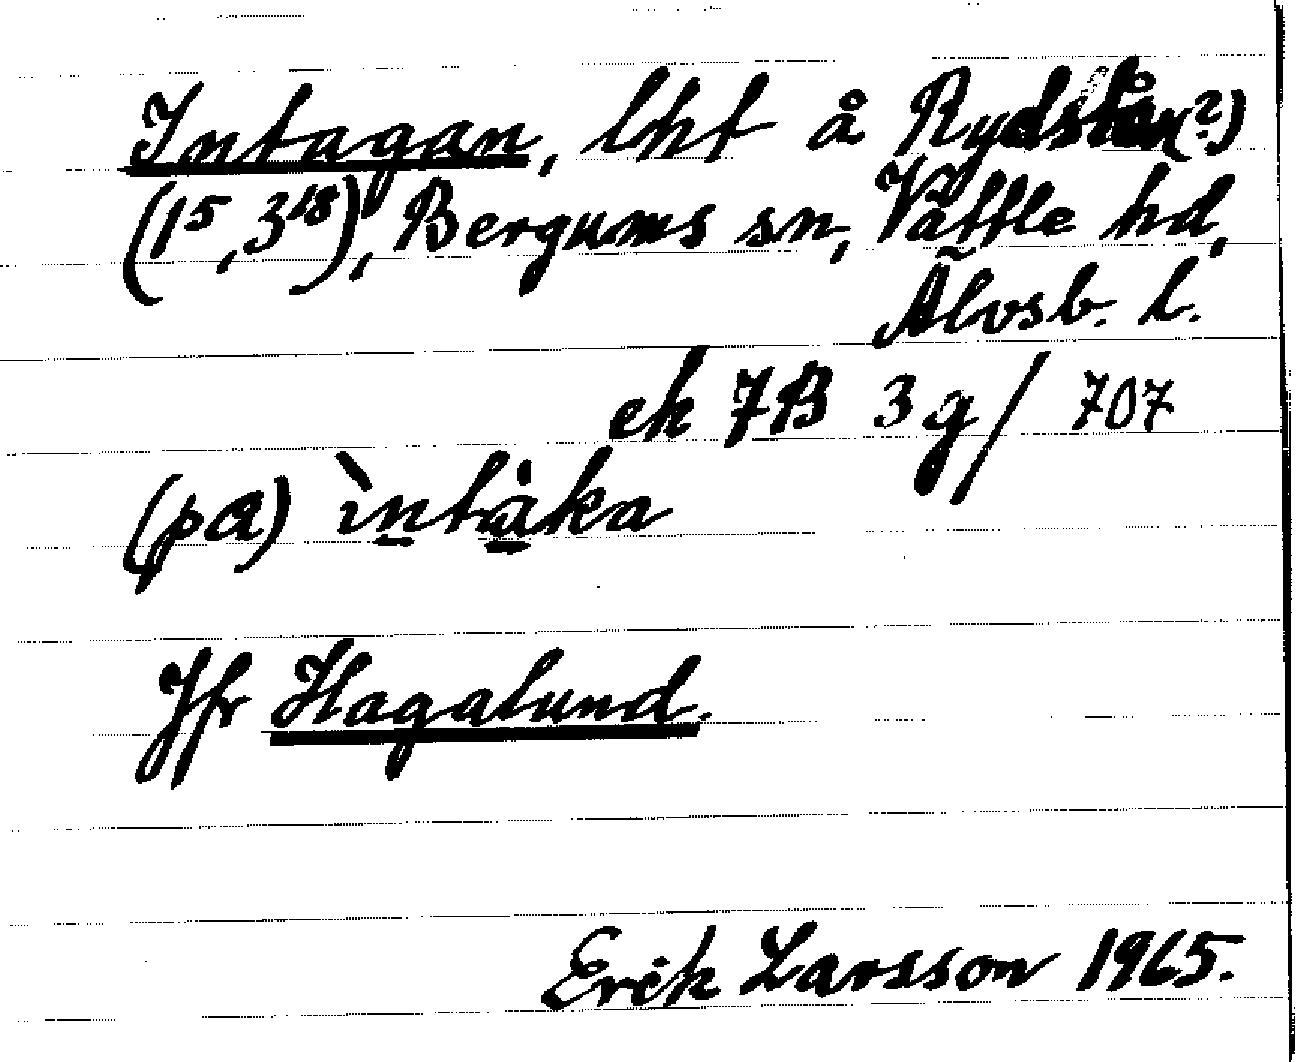 Intagan, lht å Rydstån(?)
(1⁵, 3¹⁸), Bergums sn, Vättle hd,
Älvsb. l.
ek 7B 3g/ 707
(pa) ìntàka
Jfr Hagalund.
Erik Larsson 1965.